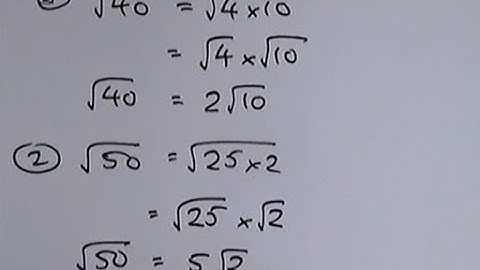 √40 = √4×10
= √4 × √10
√40 = 2√10
② √50 = √25×2
= √25 × √2
√50 = 5√2